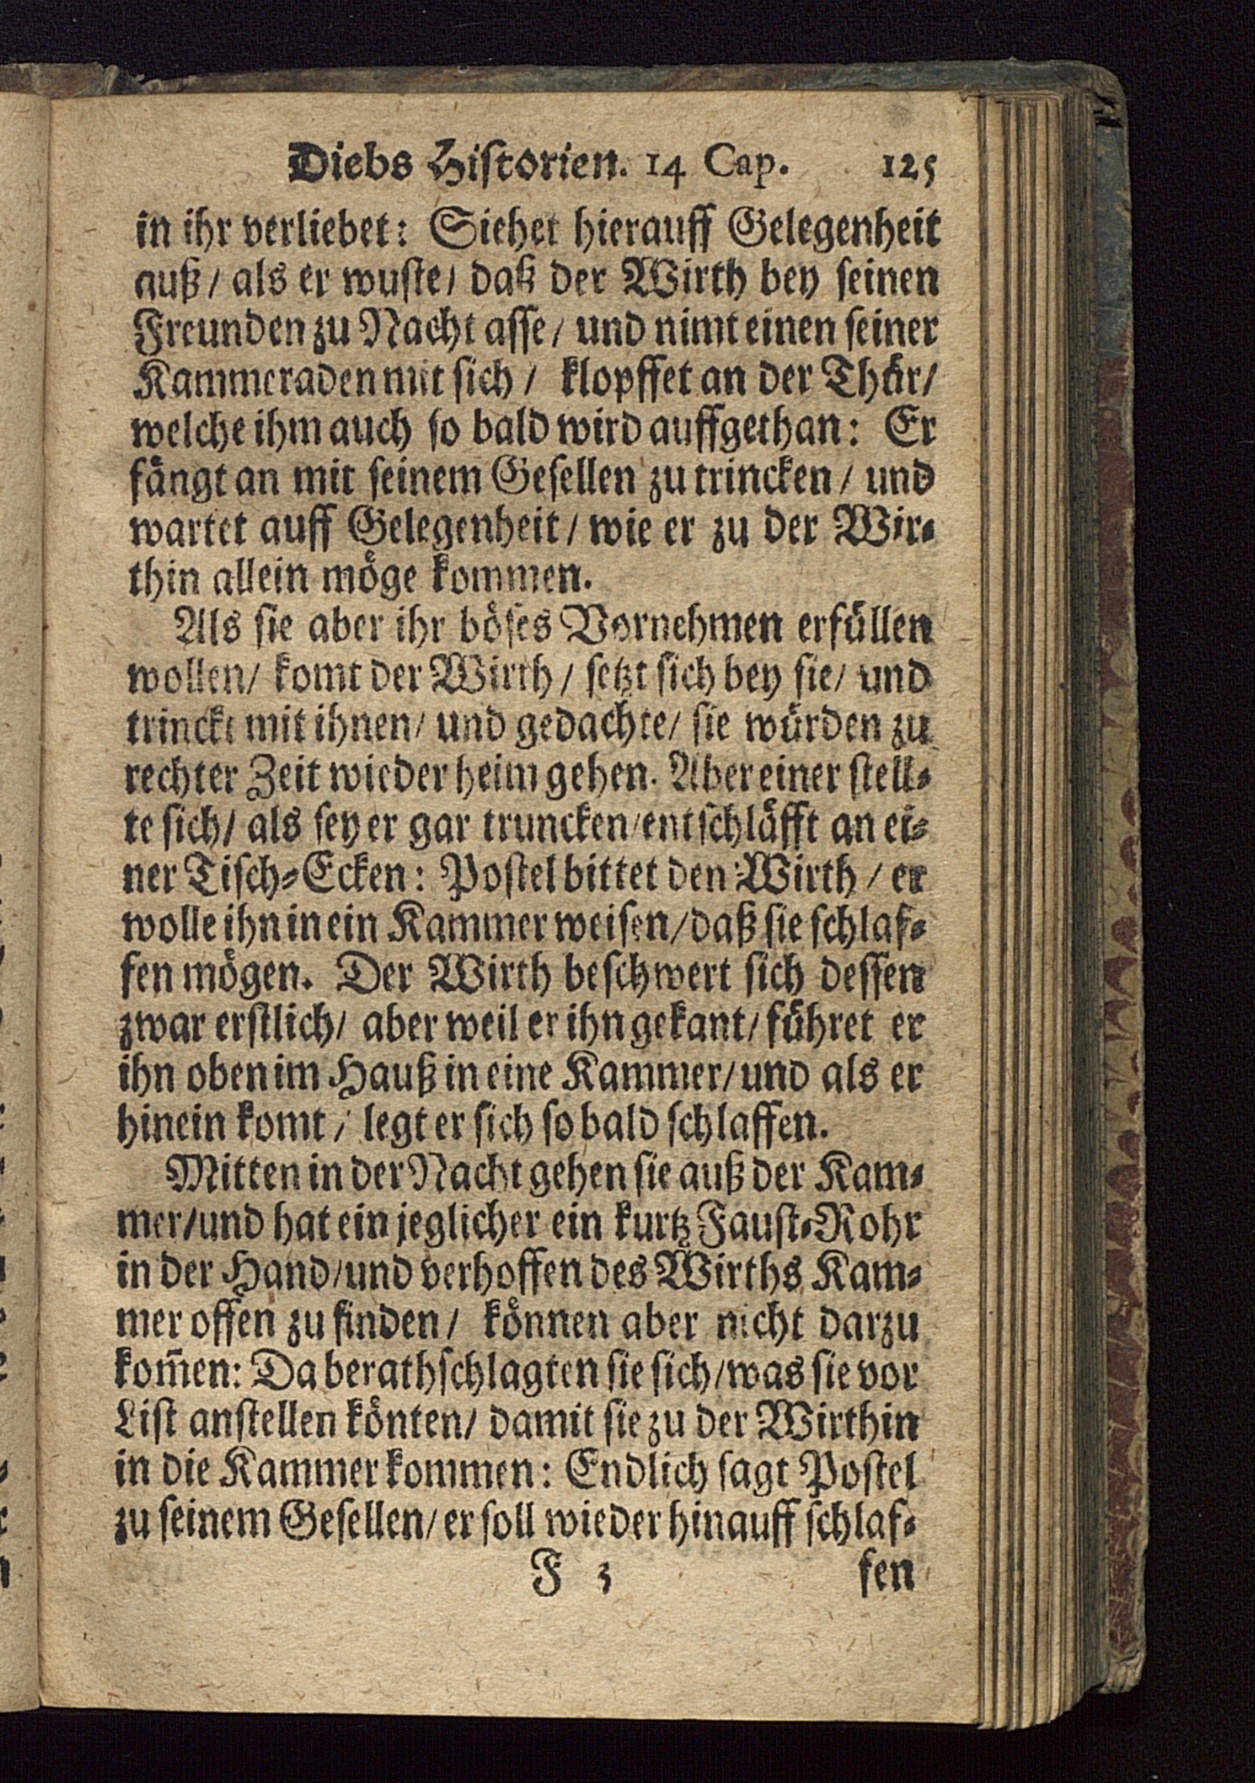 Diebs Historien. 14 Cap. 125
in ihr verliebet: Siehet hierauff Gelegenheit
auß/ als er wuste/ daß der Wirth bey seinen
Freunden zu Nacht asse/ und nimt einen seiner
Kammeraden mit sich/ klopffet an der Thür/
welche ihm auch so bald wird auffgethan: Er
fängt an mit seinem Gesellen zu trincken/ und
wartet auff Gelegenheit/ wie er zu der Wir-
thin allein möge kommen.
Als sie aber ihr böses Vornehmen erfüllen
wollen/ komt der Wirth/ setzt sich bey sie/ und
trinckt mit ihnen/ und gedachte/ sie würden zu
rechter Zeit wieder heim gehen. Aber einer stell-
te sich/ als sey er gar truncken/ entschläfft an ei-
ner Tisch-Ecken: Postel bittet den Wirth/ er
wolle ihn in ein Kammer weisen/ daß sie schlaf-
fen mögen. Der Wirth beschwert sich dessen
zwar erstlich/ aber weil er ihn gekant/ führet er
ihn oben im Hauß in eine Kammer/ und als er
hinein komt/ legt er sich so bald schlaffen.
Mitten in der Nacht gehen sie auß der Kam-
mer/ und hat ein jeglicher ein kurtz Faust-Rohr
in der Hand/ und verhoffen des Wirths Kam-
mer offen zu finden/ können aber nicht darzu
kom̃en: Da berathschlagten sie sich/ was sie vor
List anstellen könten/ damit sie zu der Wirthin
in die Kammer kommen: Endlich sagt Postel
zu seinem Gesellen/ er soll wieder hinauff schlaf-
F 3 fen